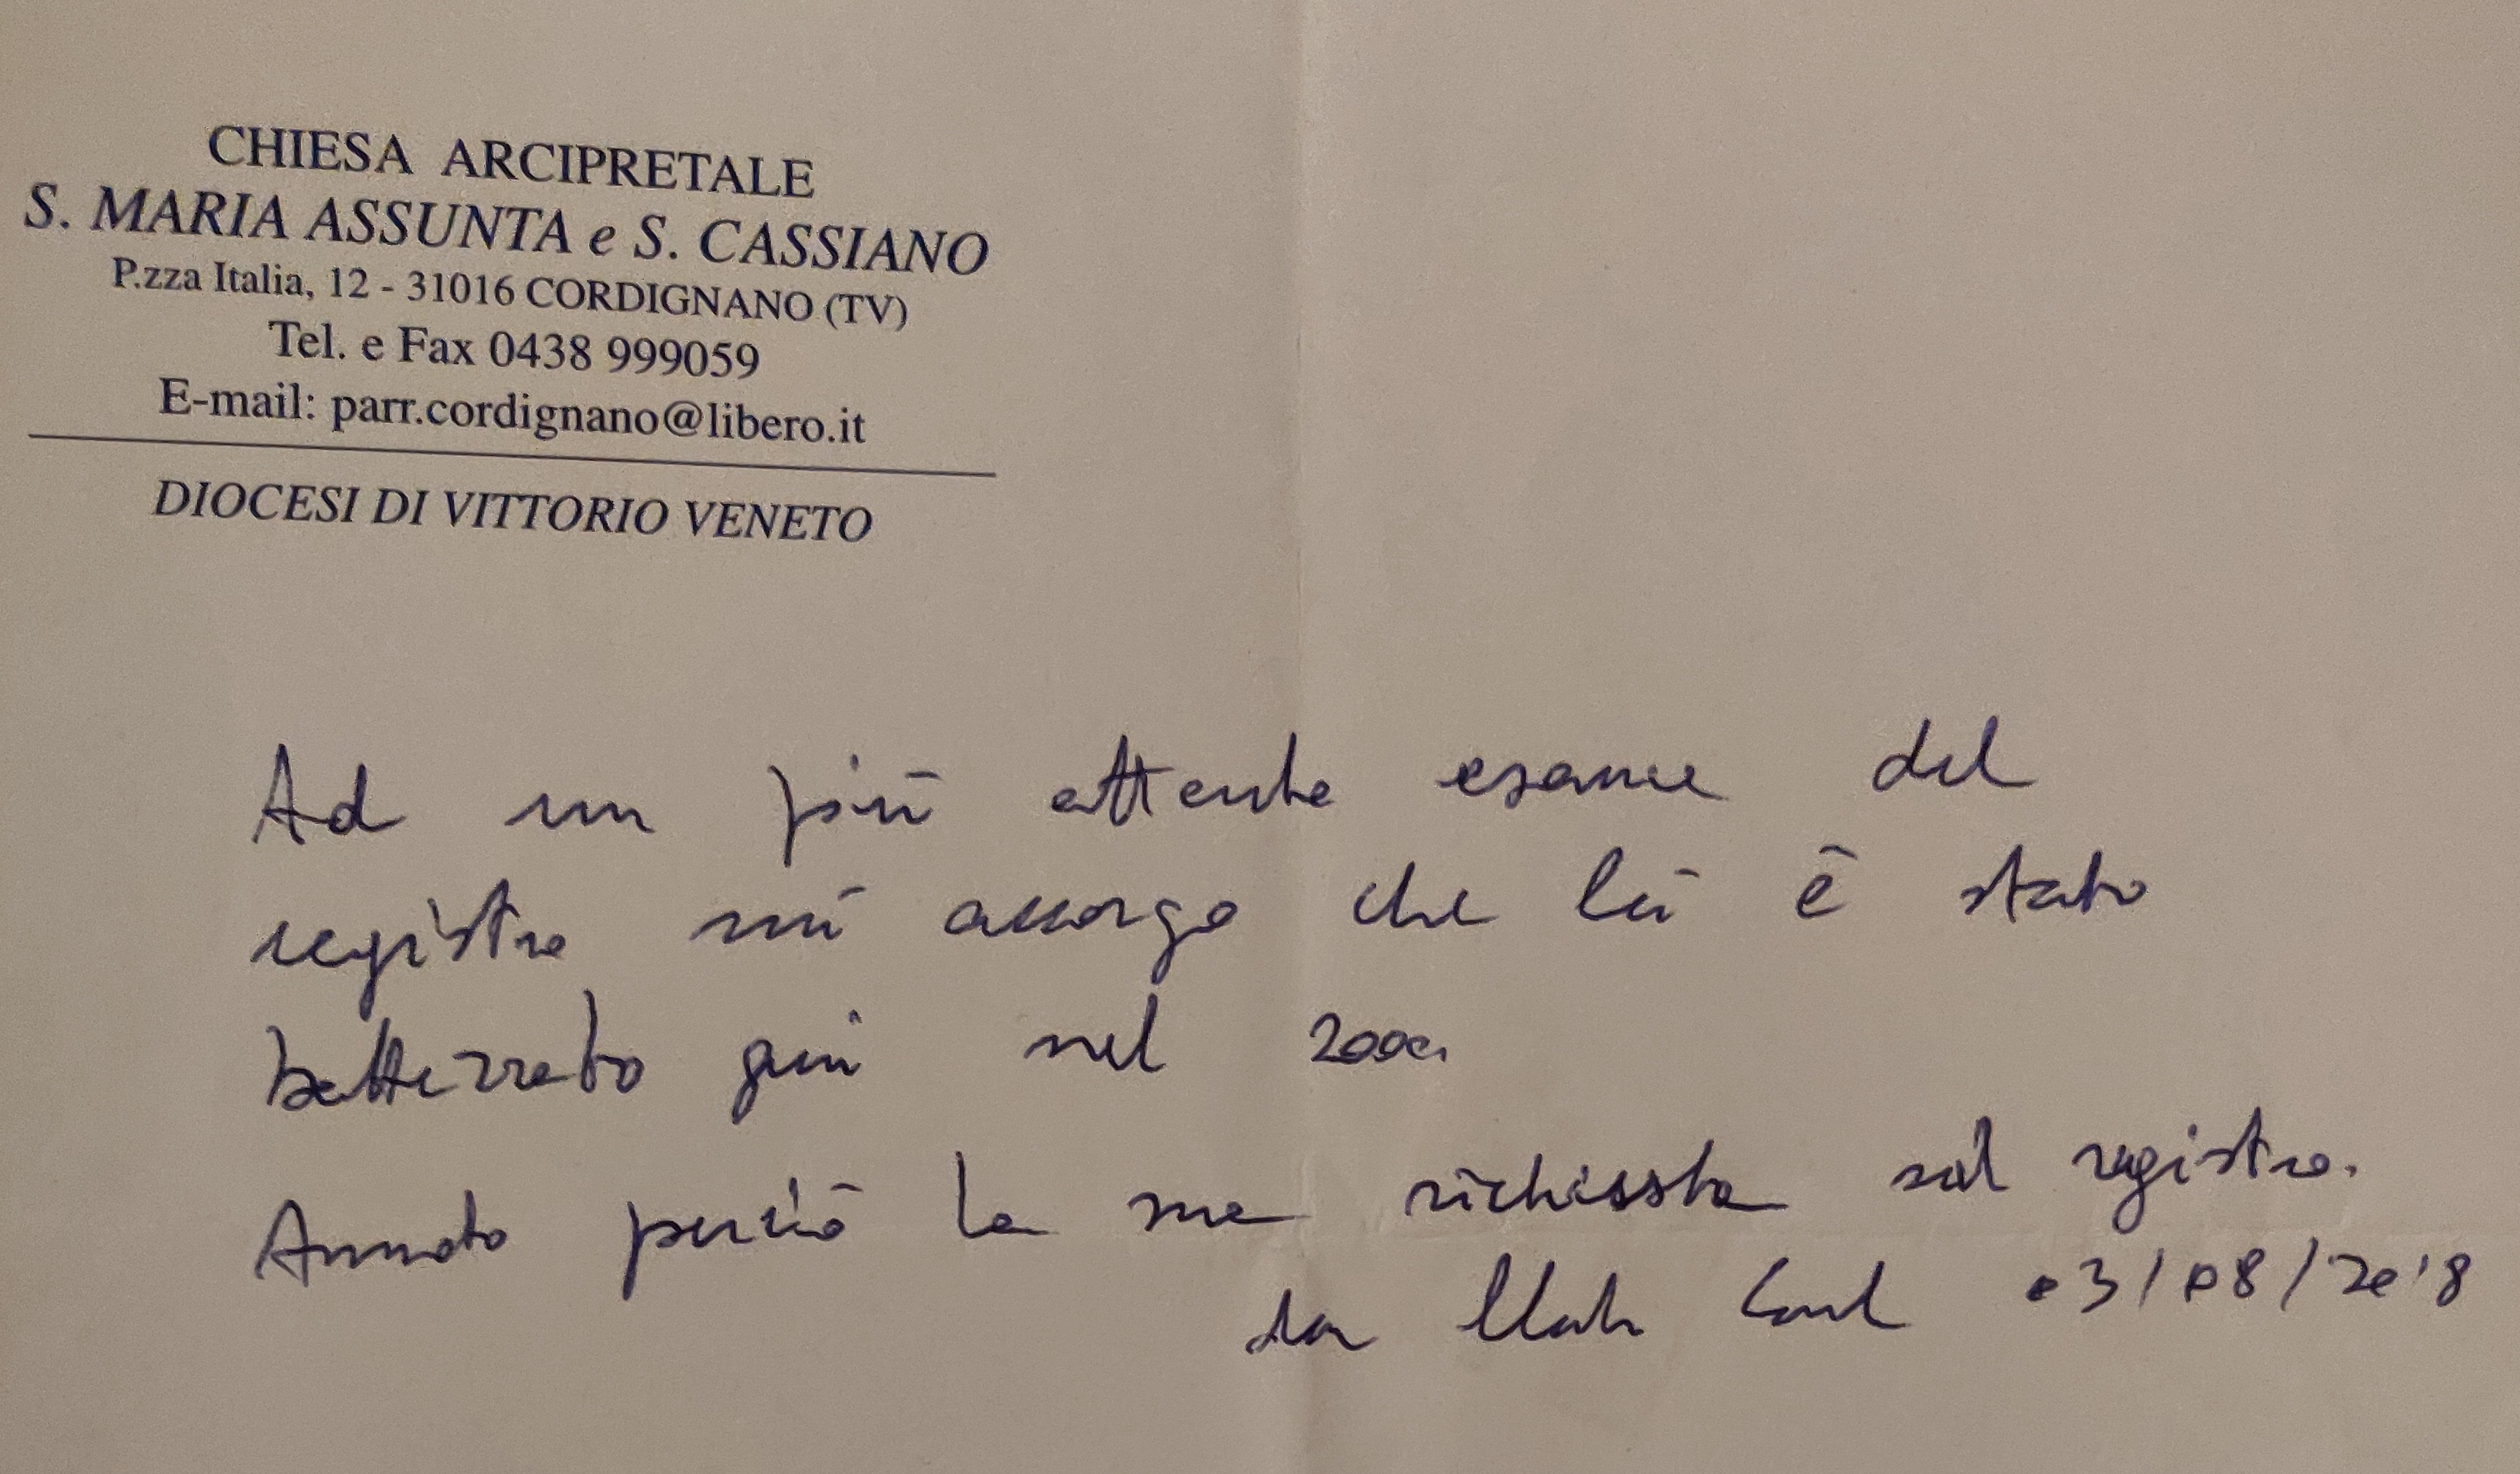 CHIESA ARCIPRETALE
S. MARIA ASSUNTA e S. CASSIANO
P.zza Italia, 12 - 31016 CORDIGNANO (TV)
Tel. e Fax 0438 999059
E-mail: parr.cordignano@libero.it
DIOCESI DI VITTORIO VENETO
Ad un più attento esame del
registro mi accorgo che lei è stato
battezzato qui nel
Annoto perciò la sua richiesta sul registro.
don 03/08/2018